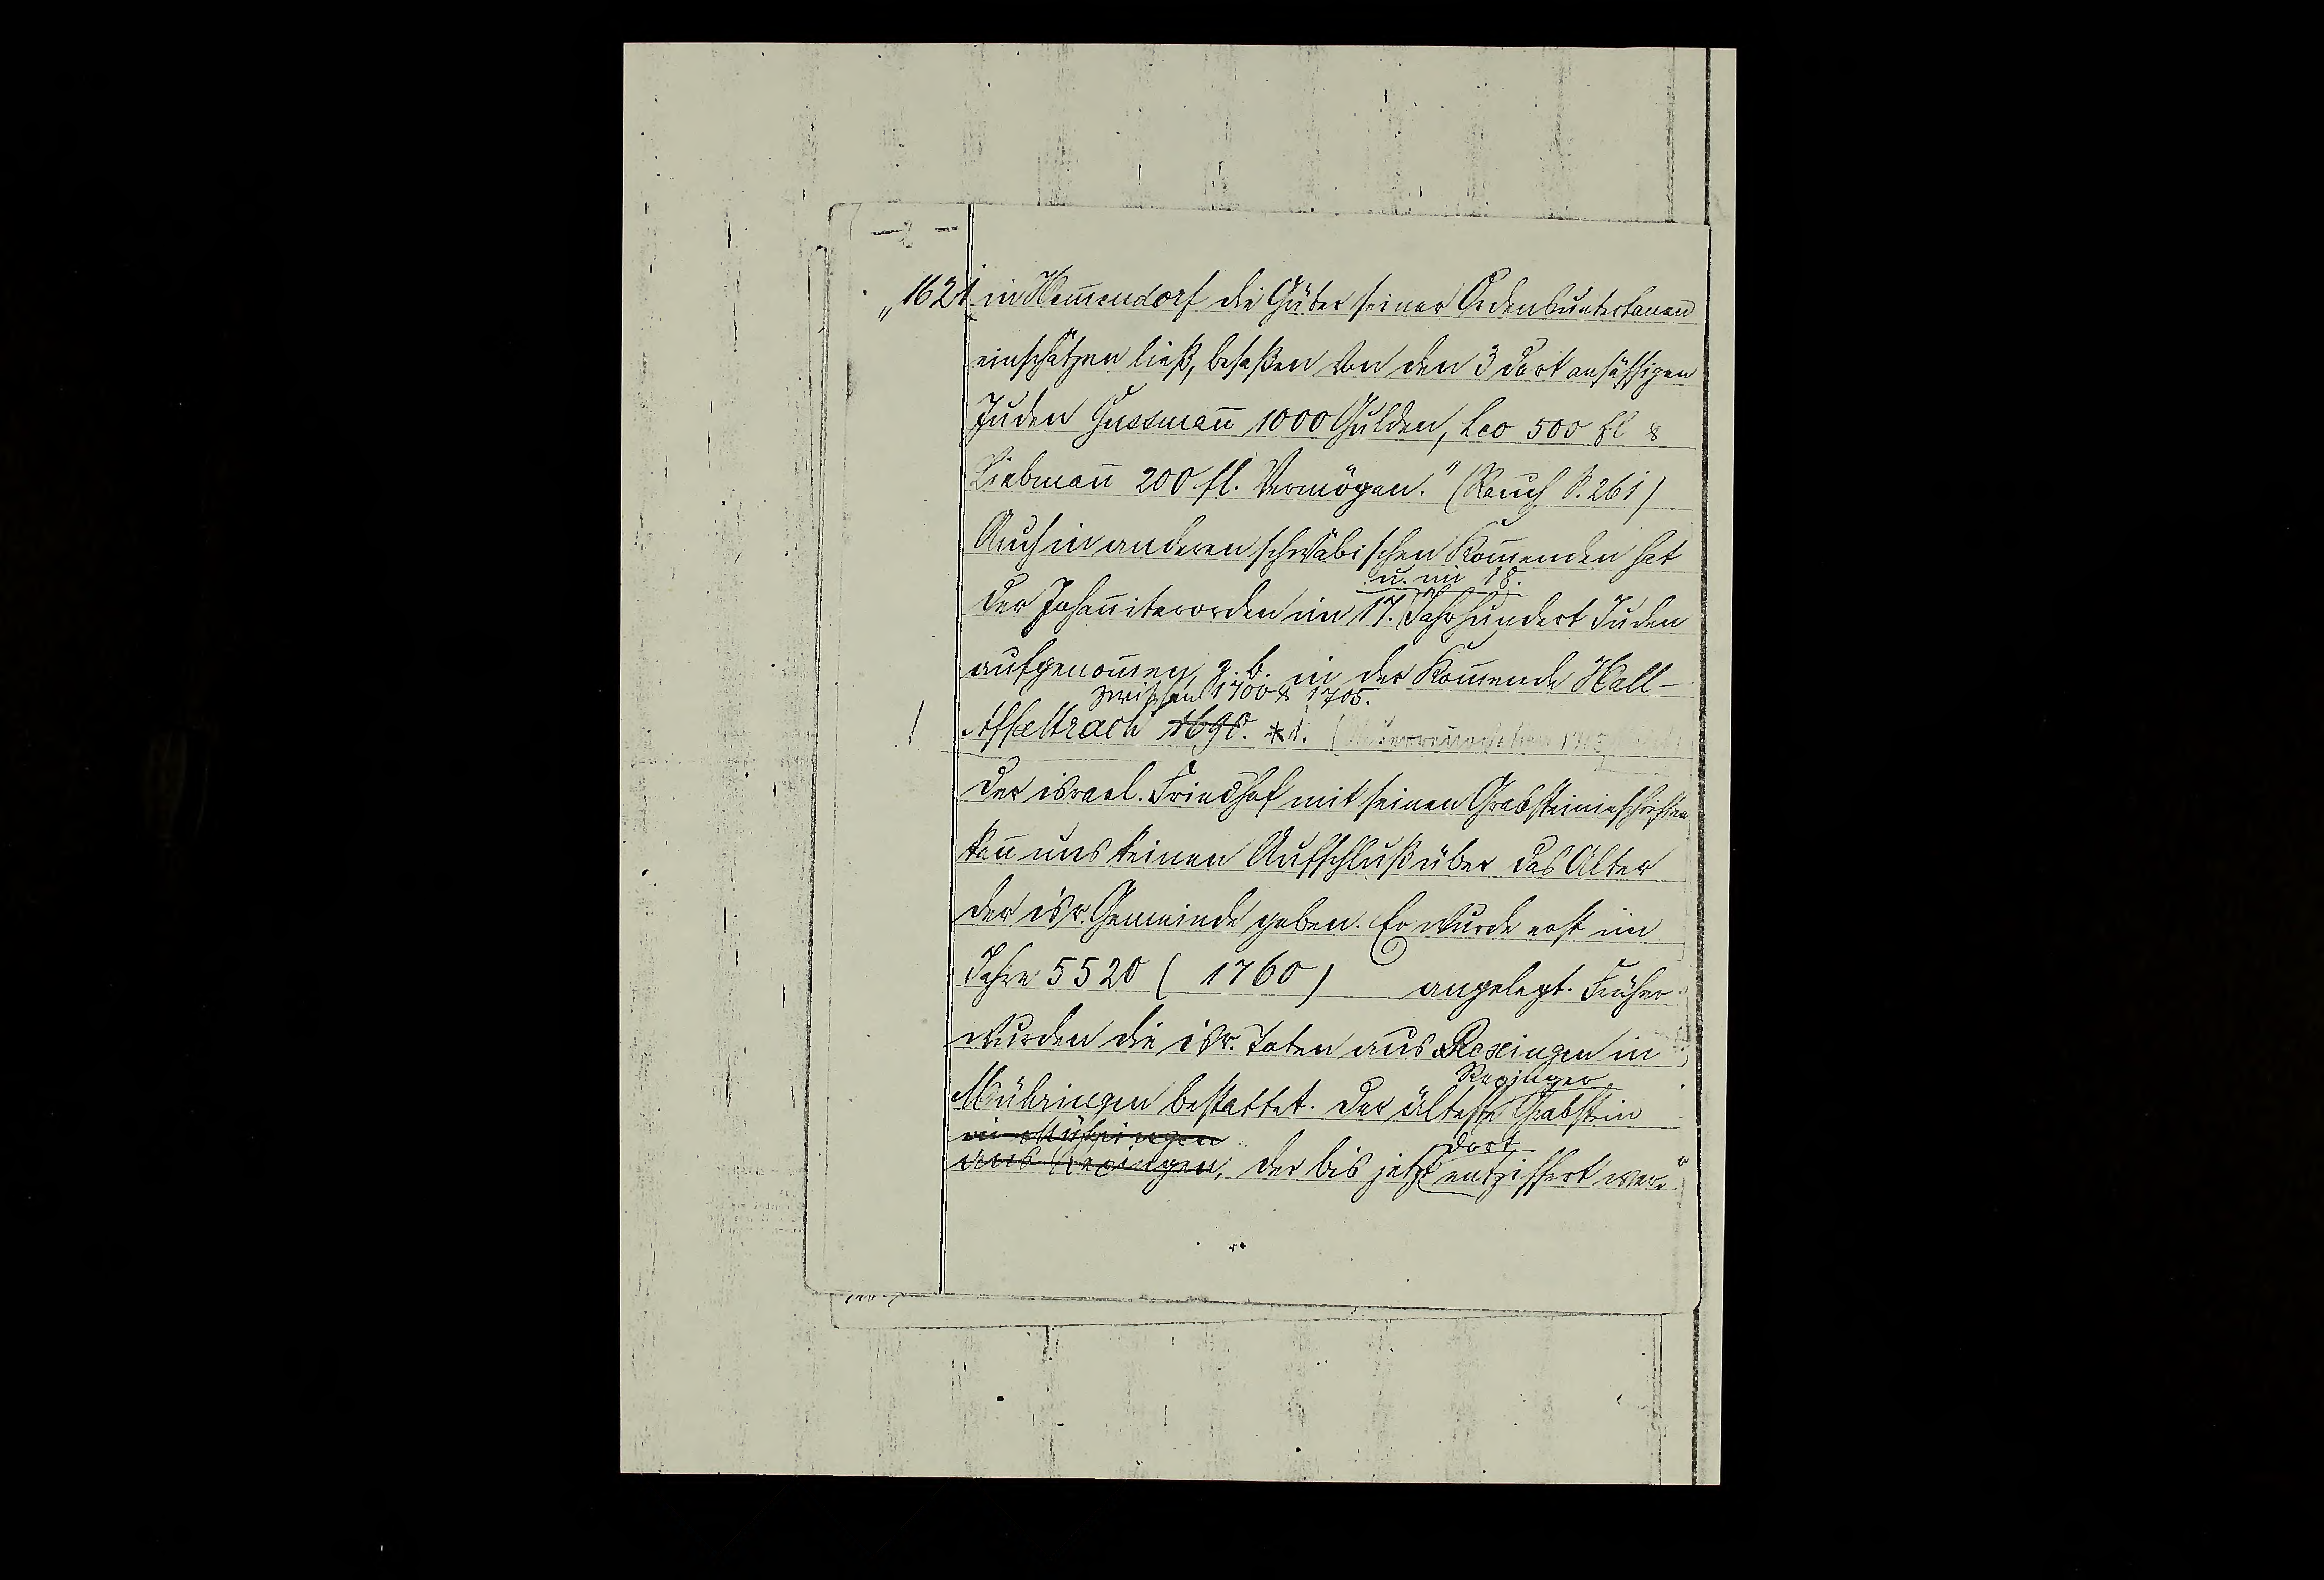 „1621 in Hem̄endorf die Güter seiner Ordensuntertanen
einschätzen ließ, besaßen von den 3 dort ansässigen
Juden Gussman̄ 1000 Gulden, Leo 500 fl &
Liebman̄ 200 fl. Vermögen." (Rauch S. 261)
Auch in anderen schwäbischen Kom̄enden hat
u. im 18.
der Johan̄iterorden im 17. Jahrhundert Juden
aufgenom̄en, z. b. in der Kom̄ende Hall-
zwischen 1700 & 1705.
! Affaltrach 1690. *1.
Der israel. Friedhof mit seinen Grabsteininschriften
kan̄ uns keinen Aufschluß über das Alter
der isr. Gemeinde geben. Er wurde erst im
Jahre 5520 ( 1760 ) angelegt. Früher
wurden die isr. Toten aus Rexingen in
Rexinger
Mühringen bestattet. Der älteste Grabstein
in Mühringen dort
aus Rexingen, der bis jetzt entziffert wer-